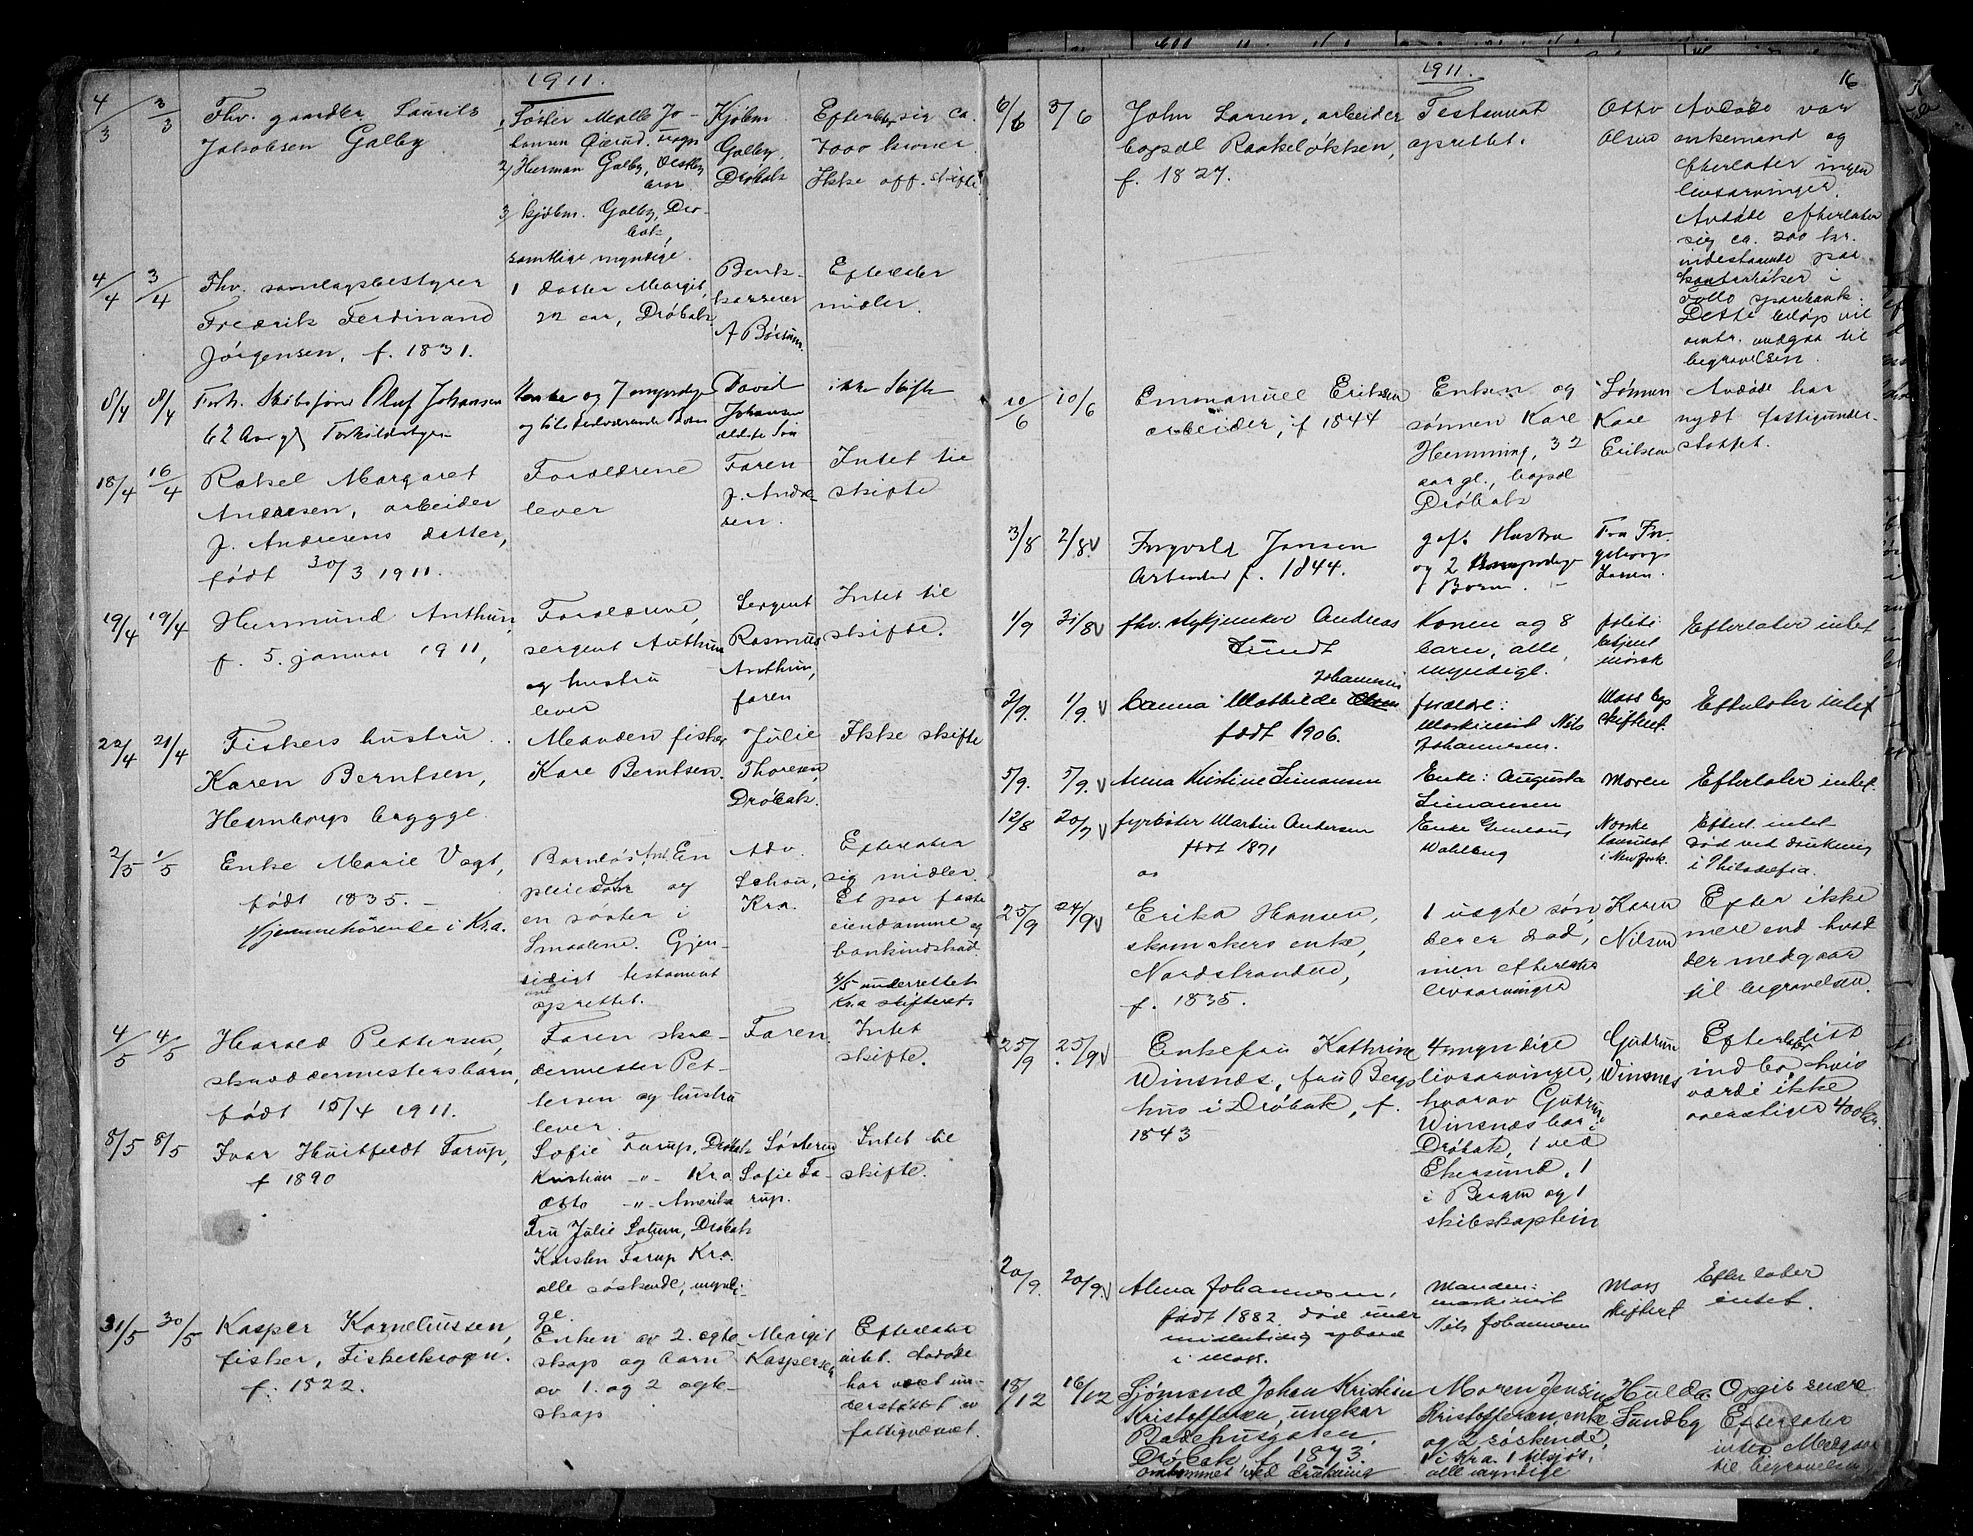 1911.
4/3 3/3 Fhv. gaardbr. Laurits
Jakobsen Galby
1/ Søster Jo-
hansen
2/ Herman Galby,
3/ kjøbm. Galby, Drø-
bak,
samtlige myndige.
Kjøbm.
Galby,
Drøbak
Efterlater sig ca.
7000 kroner
Ikke off. skifte
4/4 3/4 Fhv. samlagsbestyrer
Fredrik Ferdinand
Jørgensen, f. 1831.
1 datter Margit,
22 aar, Drøbak.
Bank-
kasserer
A
Efterlater
midler.
8/4 8/4 Forh. Skibsfører Oluf Johansen
62 Aar gl
Enke og 7 myndige
og tilstedeværende Børn
David
Johansen
ældste Søn
ikke Skifte
18/4 16/4 Rakel Margaret
Andresen, arbeider
J. Andresens datter,
født 30/3 1911.
Forældrene
lever
Faren
J. Andre-
sen.
Intet til
skifte
19/4 19/4 Hermund Anthun,
f. 5. januar 1911,
Forældrene,
sergent Anthun
og hustru
lever
Sergent
Rasmus
Anthun,
faren
Intet til
skifte.
22/4 21/4 Fiskers hustru
Karen Berntsen,
Husvikborgs brygge.
Manden fisker
Kare Berntsen.
Julie
Thoresen,
Drøbak.
Ikke skifte
2/5 1/5 Enke Marie Vogt,
født 1835. –
Hjemmehørende i Kra.
Barnløs, En
pleiedatter og
en søster i
Smaalene. Gjen-
sidigt testament
oprettet.
Adv.
Schou,
Kra.
Efterlater
sig midler.
Et par faste
eiendomme og
bankindskud.
2/5 underrettet
Kra skifteret.
4/5 4/5 Harald Pettersen,
skræddermestersbarn,
født 15/4 1911.
Faren skræ-
dermester Pet-
tersen og hustru
lever.
Faren.
Intet
skifte.
8/5 8/5 Ivar Huitfeldt Tarup,
f 1890
Sofie Tarup, Drøbak
Kristian –"– Kra
Otto –"– Amerika
Fru Julie Drøbak
Karsten Tarup Kra.
alle søskende, myndi-
ge.
Søsteren
Sofie Ta-
rup.
Intet til
skifte.
31/5 30/5 Kasper Korneliussen,
fisker, Fiskerkrogn.
f. 1822.
Enken av 2. ægte-
skap og barn
av 1. og 2 ægte-
skap
Margit
Kaspersen
Efterlater
intet. Avdøde
har været un-
derstøttet av
fattigvæsnet.
1911.
16
6/6 5/6 John Larsen, arbeider
bopæl Raakeløkken,
f. 1827.
Testament
oprettet.
Otto
Olsen
Avdøde var
enkemand og
efterlater ingen
livsarvinger.
Avdøde efterlater
sig ca. 200 kr.
indestaaende paa
kontrabøker i
Follo sparebank.
Dette beløp vil
omtr. medgaa til
begravelsen.
10/6 10/6 Emmanuel Eriksen
arbeider, f 1844
Enken og
sønnen Kare
Hemming, 32
aar gl., bopæl
Drøbak
Sønnen
Kare
Eriksen
Avdøde har
nydt fattigunder-
støttet.
3/8 2/8 v Ingvald Jansen
Arbeider f. 1844.
gift Hustru
og 2 myndige
Børn
Fru In-
geborg
Jansen.
1/9 31/8 v fhv. styrmann Andreas
Lundt
Konen og 8
barn, alle
myndige.
politi-
betjent
Mørck
Efterlater intet
2/9. 1/9. v Canna Mathilde Olsen Johannesen
født 1906.
forældre:
Maskinist Nils
Johannesen.
Moss by
skifteret.
Efterlater intet
5/9. 5/9. v Anna Kristine Simonsen
Enke: Augusta
Simonsen
Moren
Efterlater intet.
12/8 20/7 v fyrbøter Martin Andersen
født 1871
Enke
Wahlberg
Norske
konsulat
i New York.
Efterl. intet
død ved drukning
i Philadelfia.
25/9 24/9 v Erika Hansen,
enke,
Nordstranden,
f. 1835.
1 uægte søn,
der er død,
men efterlater
livsarvinger
Karen
Nilsen
Efter ikke
mere end hvad
der medgaar
til begravelsen.
25/9 25/9 v Enkefru Kathrine
Winsnæs, fru Berg
hus i Drøbak, f.
1843
4 myndige
livsarvinger,
hvorav Gudrun
Winsnæs bor i
Drøbak, 1 ved
Ekersund, 1
i Bergen og 1
skibskaptein
Gudrun
Winsnæs
Efterlatt
indbo, hvis
værdi ikke
overstiger 400 kr.
20/9. 20/9. v Alma Johannesen,
født 1882. død under
midlertidig ophold
i Moss.
Manden:
maskinist
Nils Johannesen
Moss
skifteret
Efterlater
intet.
18/12 16/12 Sjømand Johan Kristian
Kristoffersen, ungkar
Badehusgaten,
Drøbak, f. 1873.
omkommet ved drukning
Moren Jensine
Kristoffersen, enke
og 2 søskende,
1 i Kra. 1 tilsjøs,
alle myndige
Hulda
Sundby
Opgit senere
Efterlater
intet. Medgaar
til begravelsen